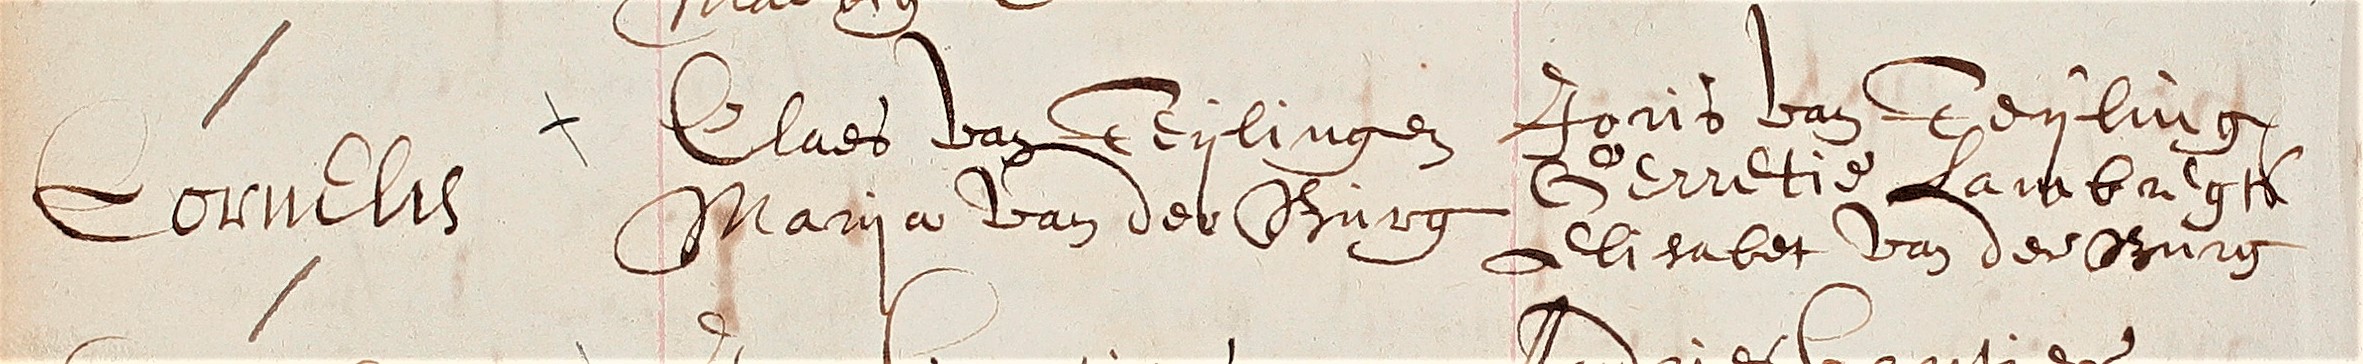 Cornelis
Claes van Teijlingen
Marija van der Burg
Joris van Teijling
Gerretie Lambregts
Elisabet van der Burg